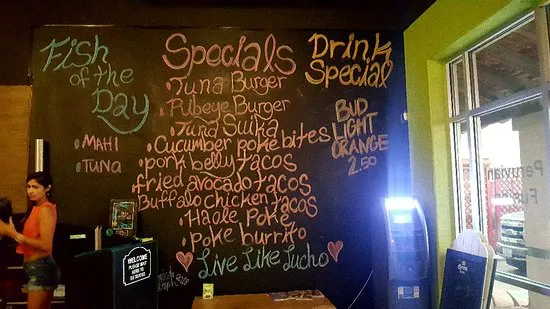 Fish
of the
Day
• MAHI
• TUNA
Specials
• Tuna Burger
• Pubeye Burger
• Tuna Suika
• Cucumber poke bites
• pork belly tacos
fried avocado tacos
Buffalo chicken tacos
• Haole Poke
• Poke burrito
Live Like Lucho
Drink
Special
BUD
LIGHT
ORANGE
2.50
WELCOME
PLEASE WAIT
HERE TO
BE SEATED
Peruvian